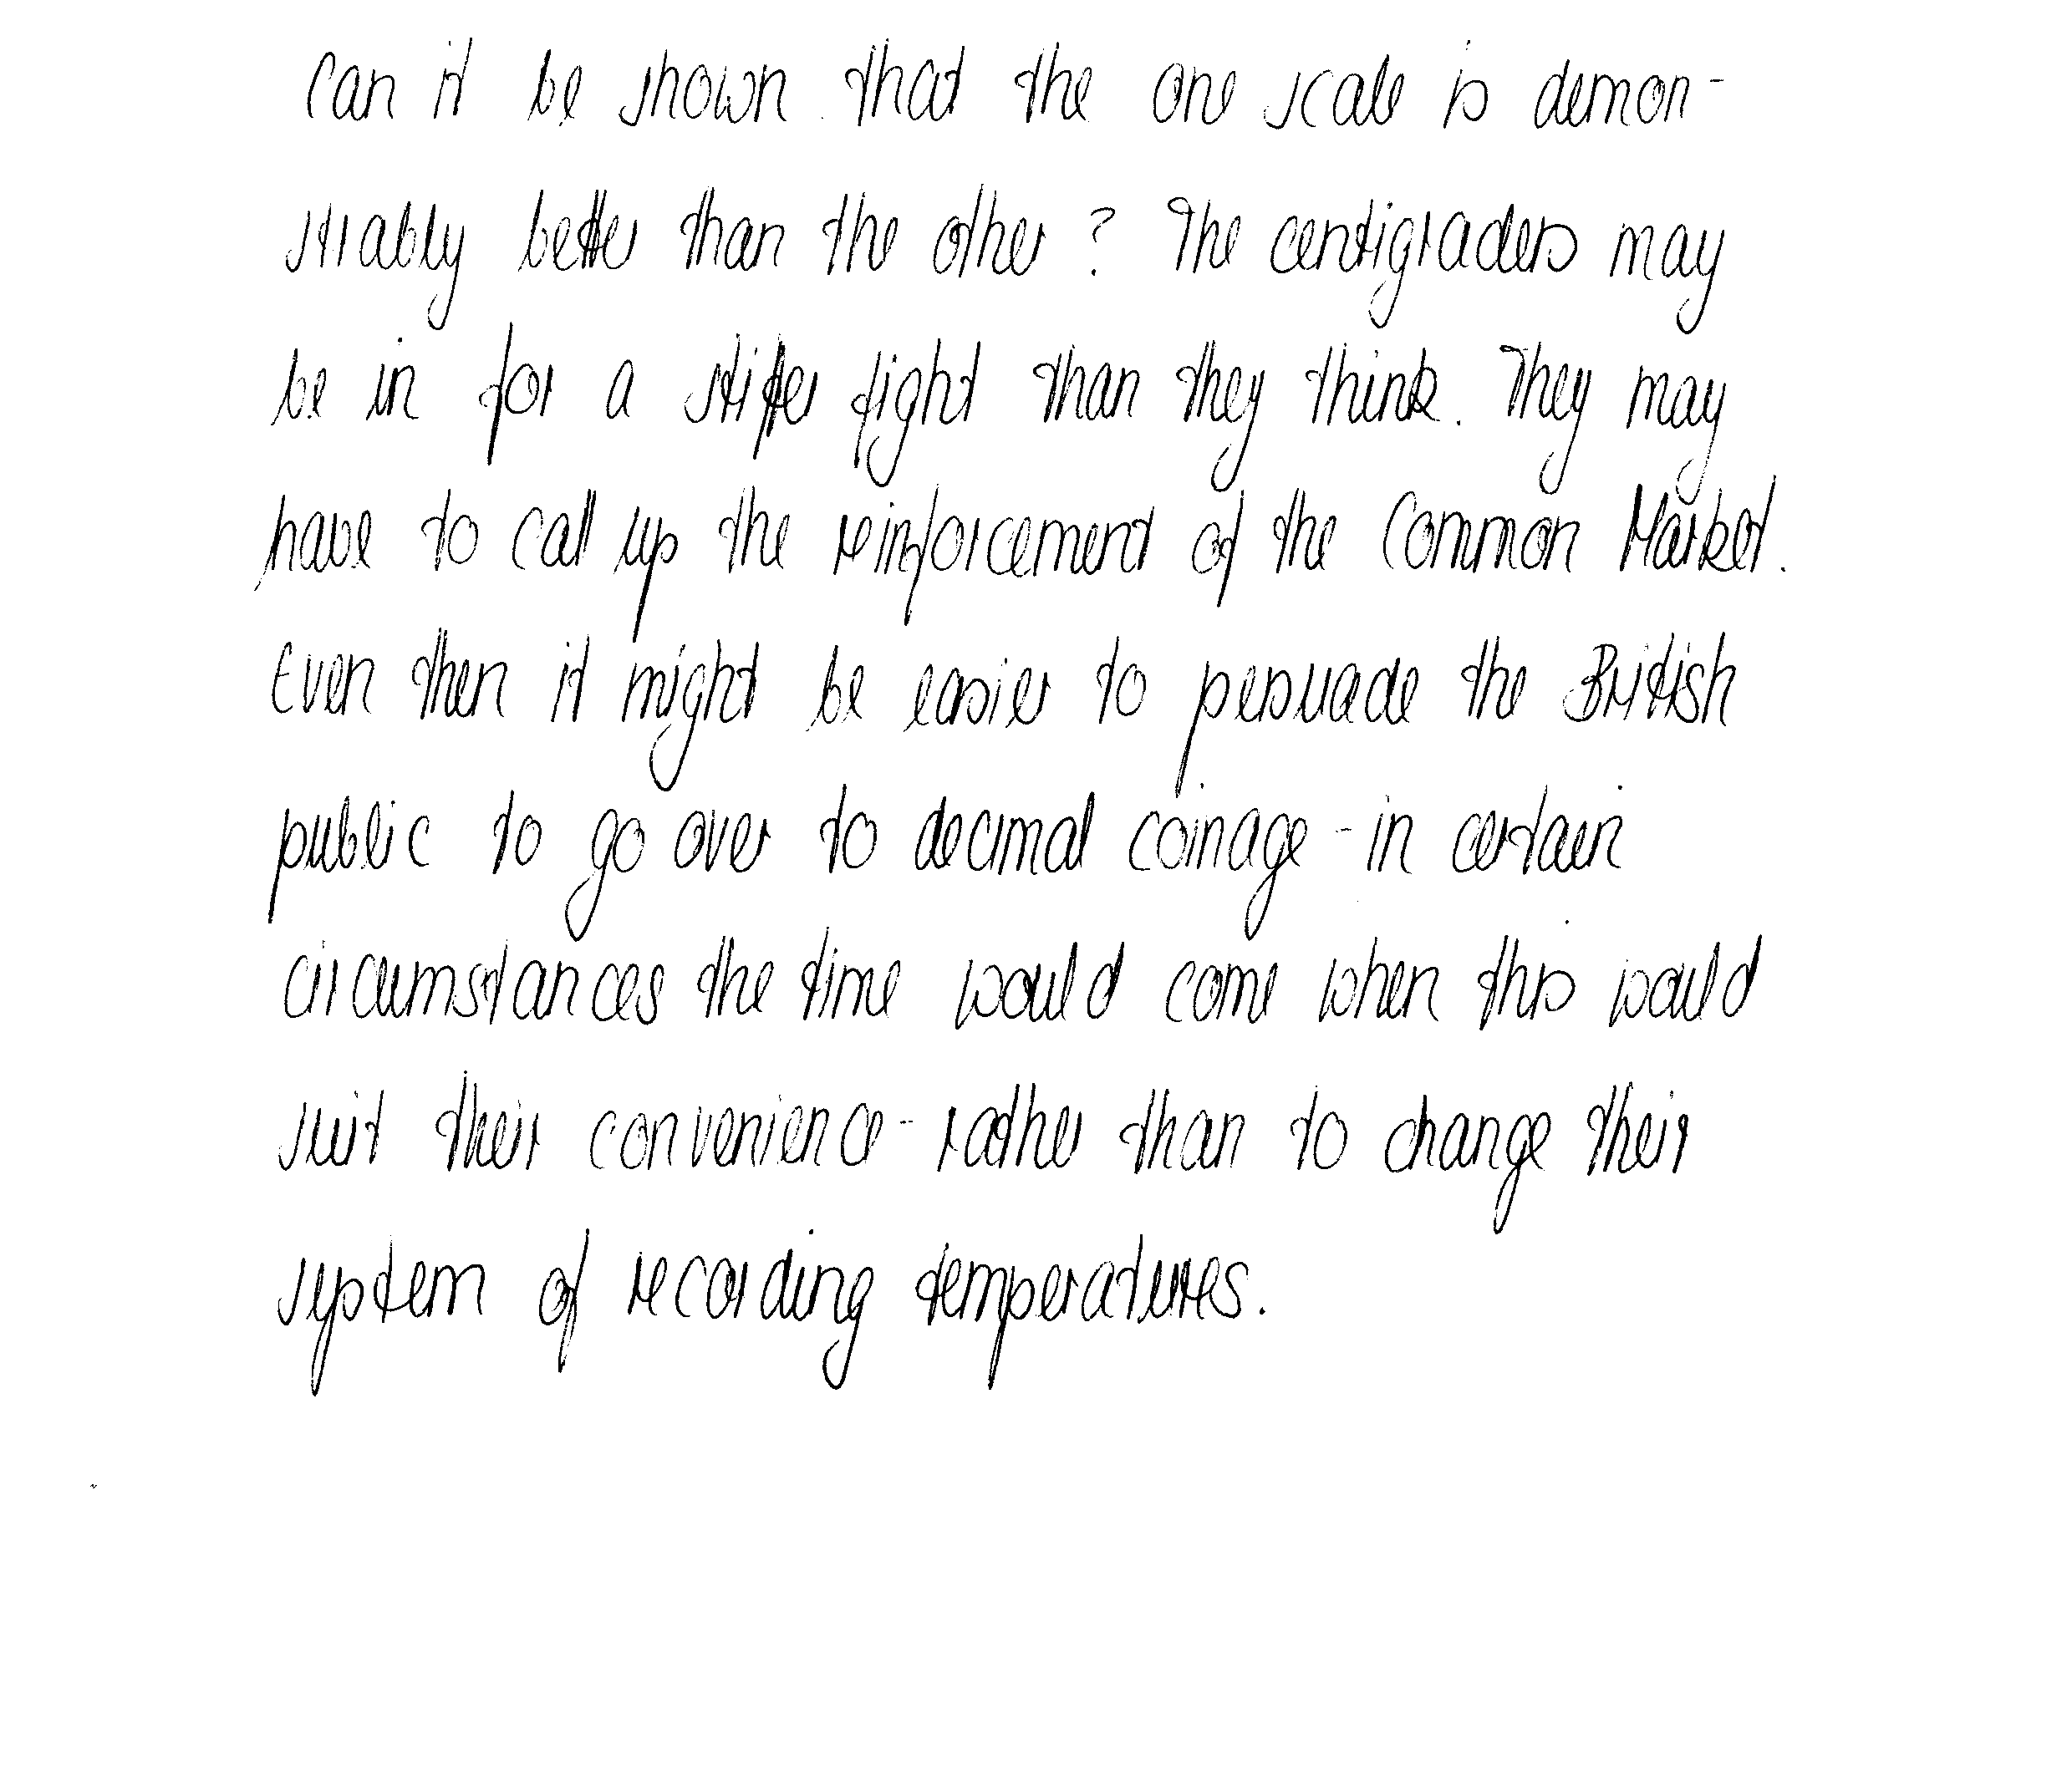 Can it be shown that the one scale is demon-
strably better than the other ? The centigraders may
be in for a stiffer fight than they think. They may
have to call up the reinforcement of the Common Market.
Even then it might be easier to persuade the British
public to go over to decimal coinage - in certain
circumstances the time would come when this would
suit their convenience - rather than to change their
system of recording temperatures.